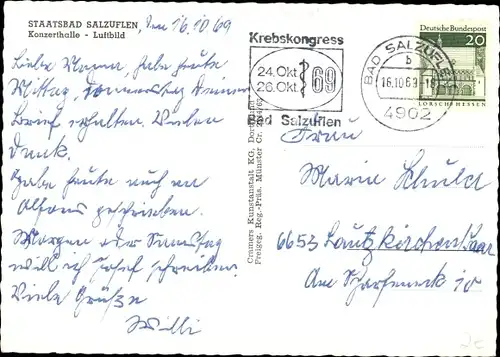 STAATSBAD SALZUFLEN, den 16.10.69
Konzerthalle - Luftbild
Liebe Mama, habe heute
Mittag, Donnerstag Deinen
Brief erhalten. Vielen
Dank.
Habe heute auch an
Alfons geschrieben.
Morgen oder Samstag
will ich Josef schreiben.
Viele Grüße
Willi
Cramers Kunstanstalt KG. Dortmund
Freigeg. Reg.-Präs. Münster Cr.
Krebskongress
24. Okt
26. Okt.
69
Bad Salzuflen
BAD SALZUFLEN
b
16.10.69-18
4902
Deutsche Bundespost
20
LORSCH/HESSEN
Frau
Maria Schuld
6653 Lautzkirchen Saar
Am Scharfeneck 10